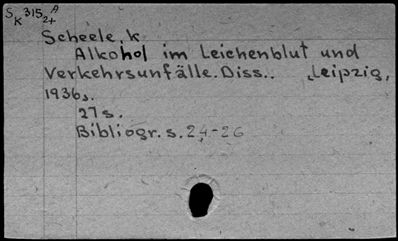 S K 315 A 2+
Scheele, K
Alkohol im Leichenblut und
Verkehrsunfälle. Diss.. Leipzig,
1936.
27 s.
Bibliogr. s. 24-26